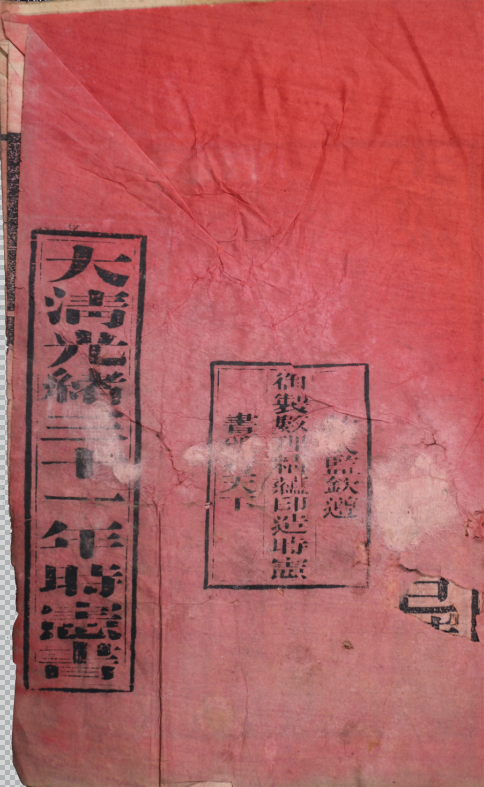 監欽遵
御製數理精蘊印造時憲
書 天下
大清光緒三十一年時憲書